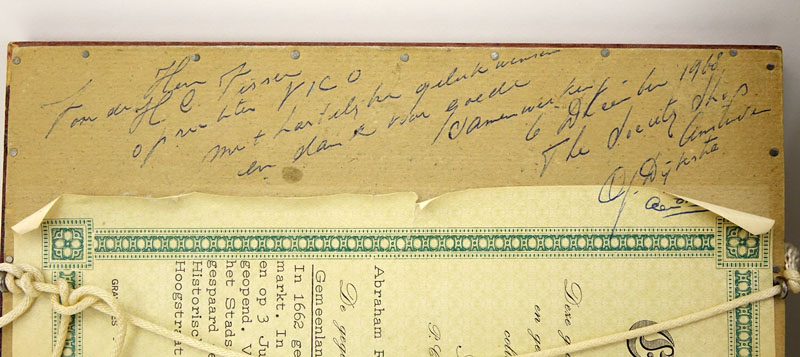 Voor de Heer Visser
H C
oprichter VICO
met hartelijke gelukwensen
en dank voor goede samenwerking
6 December 1968
The Society Shop
Amsterdam
Dijkstra
Abraham
De
Gemeenlan
In 1662 ge
markt. In
en op 3 Ju
geopend. V
het Stads
gespaard
Historisc
Hoogstraat
Deze g
en ge
GRA